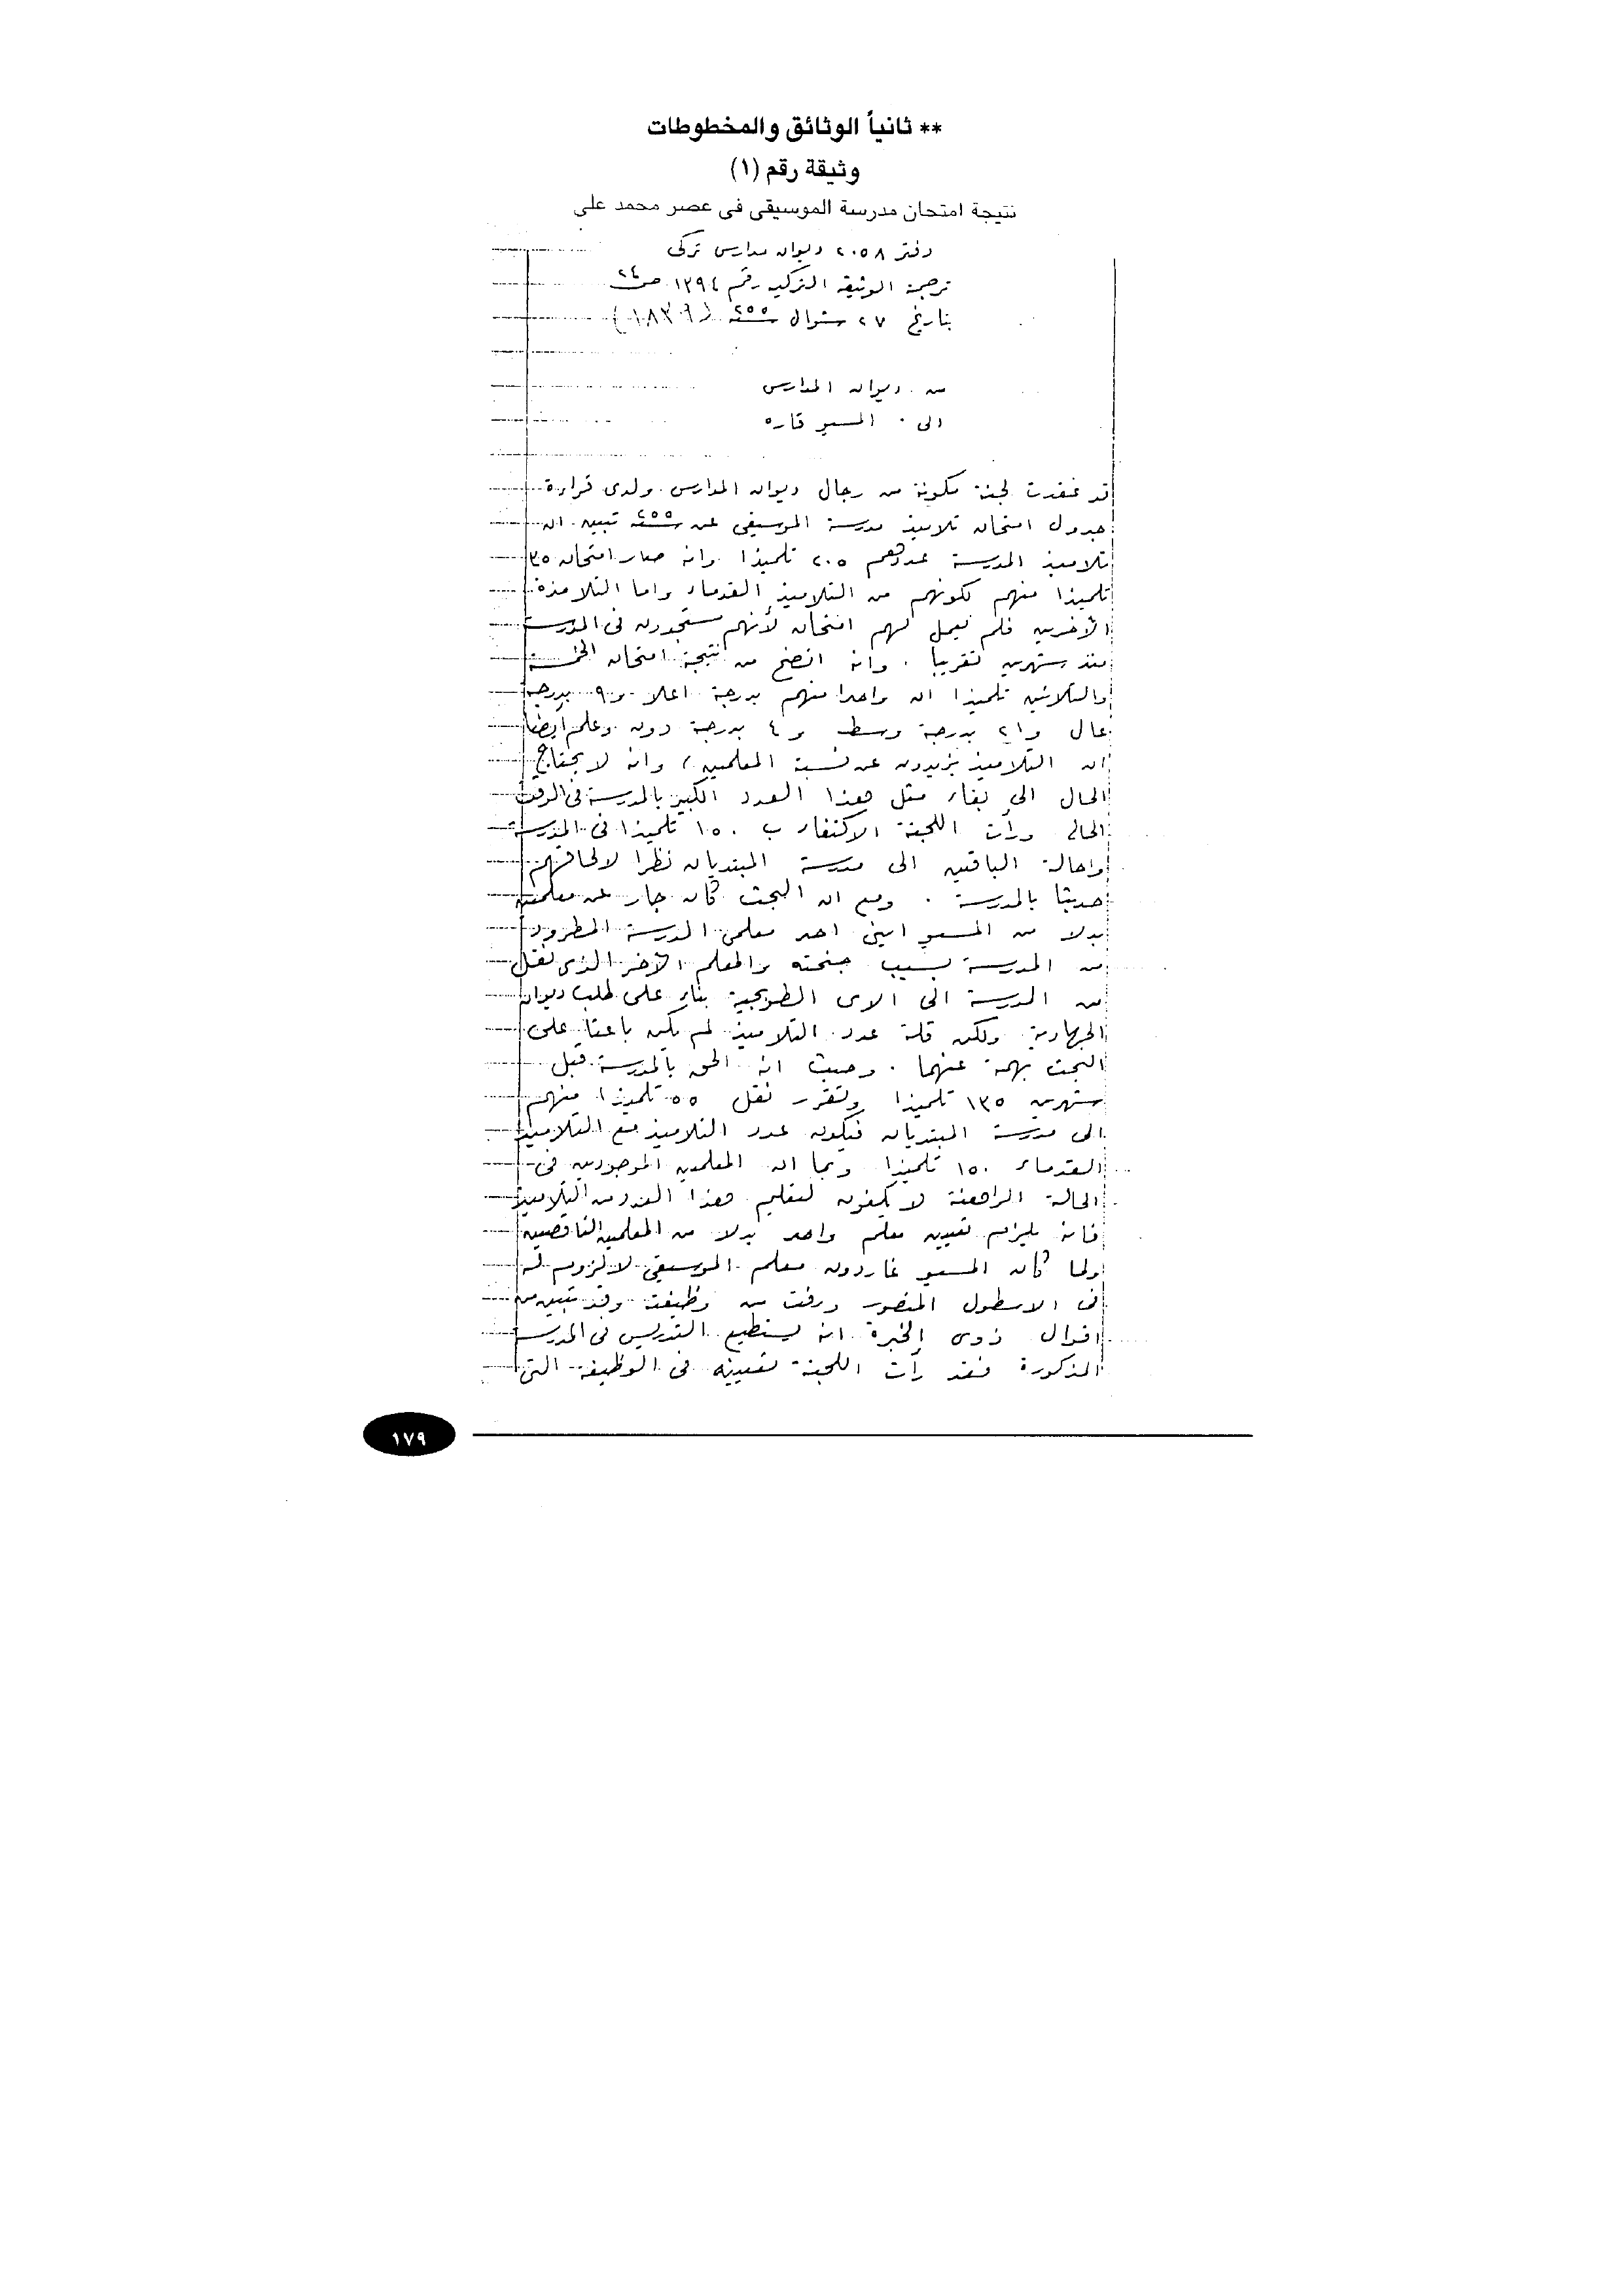 ** ثانياً الوثائق والمخطوطات
وثيقة رقم (١)
نتيجة امتحان مدرسة الموسيقى فى عصر محمد على
دفتر ٢٠٥٨ ديوان مدارس تركى
ترجمة الوثيقة التركية رقم ١٢٩٤ ص ٢٤
بتاريخ ٢٧ شوال سنة ٢٥٥ (١٨٣٩)
من ديوان المدارس
الى المسيو قاره
قد عقدت لجنة مكونة من رجال ديوان المدارس ولدى قراءة
جدول امتحان تلاميذ مدرسة الموسيقى عن سنة ٢٥٥ تبين ان
تلاميذ المدرسة عددهم ٢٠٥ تلميذا وانه صار امتحان ٣٥
تلميذا منهم لكونهم من التلاميذ القدماء واما التلامذة
الآخرين فلم يعمل لهم امتحان لأنهم مستجدون فى المدرسة
منذ شهرين تقريبا . وانه اتضح من نتيجة امتحان الخمسة
والثلاثين تلميذا ان واحدا منهم بدرجة اعلا و٩ بدرجة
عال و٢١ بدرجة وسط و ٤ بدرجة دون وعلم ايضا
ان التلاميذ يزيدون عن نسبة المعلمين وانه لا يحتاج
الحال الى بقاء مثل هذا العدد الكبير بالمدرسة فى الوقت
الحالى ورأت اللجنة الاكتفاء ب ١٥٠ تلميذا فى المدرسة
واحالة الباقين الى مدرسة المبتديان نظرا لالحاقهم
حديثا بالمدرسة . ومع ان البحث كان جار عن معلمين
بدلا من المسيو احد معلمى المدرسة المطرود
من المدرسة بسبب جنحته والمعلم الآخر الذى نقل
من المدرسة الى الاى الطوبجية بناء على طلب ديوان
الجهادية ولكن قلة عدد التلاميذ لم يكن باعثا على
البحث بهمة عنهما . وحيث انه الحق بالمدرسة قبل
شهرين ١٣٥ تلميذا وتقرر نقل ٥٥ تلميذا منهم
الى مدرسة المبتديان فيكون عدد التلاميذ مع التلاميذ
القدماء ١٥٠ تلميذا وبما ان المعلمين الموجودين فى
الحالة الراهنة لا يكفون لتعليم هذا العدد من التلاميذ
فانه يلزم تعيين معلم واحد بدلا من المعلمين الناقصين
ولما كان المسيو غاردون معلم الموسيقى لا لزوم له
فى الاسطول المنصور ورفت من وظيفته وقد تبين من
اقوال ذوى الخبرة انه يستطيع التدريس فى المدرسة
المذكورة فقد رأت اللجنة تعيينه فى الوظيفة التى
١٧٩